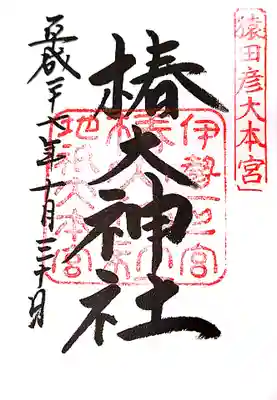 猿田彦大本宮
椿大神社
伊勢一之宮
椿大神社
地祇大本宮
平成二十七年十一月三十日